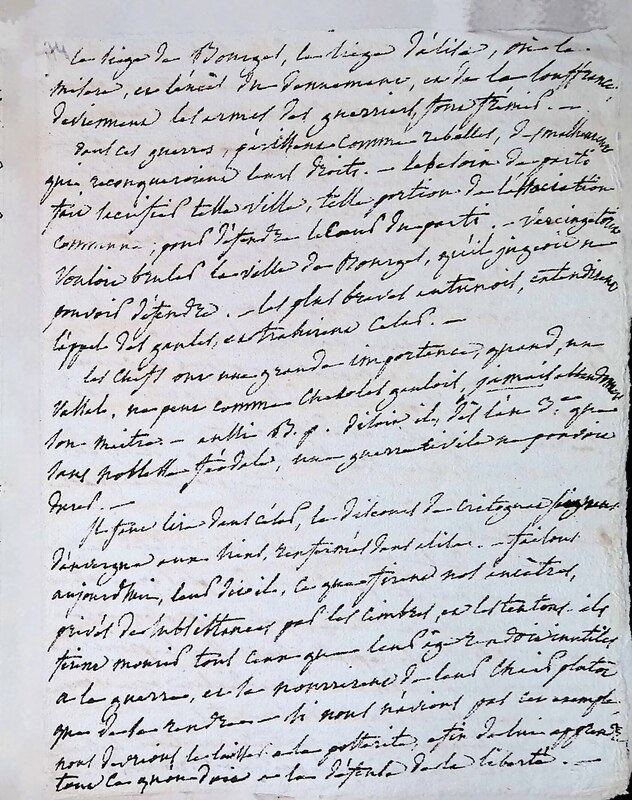 le siege de Bourges, le siege d'alise, où la
misere, et l'excès du denuement, et de la souffrance,
deviennent les armes des guerriers, font frémir. —
dans ces guerres, périssent comme rebelles, des malheureux
qui reconqueroient leurs droits. — le besoin du parti
fait sacrifier telle ville, telle portion de l'association
commune, pour défendre le corps du parti. — vercingetorix
vouloit bruler la ville de Bourges, qu'il jugeoit ne
pouvoir défendre. — les plus braves autunois, entendirent
l'appel des gaules, et trahirent César. —
les chefs ont une grande importance, quand, un
vassal, ne peut comme chez les gaulois, jamais abandonner
son maitre. — aussi B. p. disoit il, dès l'an 3. que
sans noblesse féodale, une guerre civile ne pouvoit
durer. —
Il faut lire dans César le discours de critognat seigneur
d'auvergne aux siens, renfermés dans alise. — faisons
aujourdhui, leur dit il, ce que firent nos ancêtres,
privés de subsistances par les cimbres, et les teutons. ils
firent mourir tous ceux que leur âge rendoit inutiles
a la guerre, et se nourrirent de leur chair plutôt
que de se rendre — si nous n'avions pas cet exemple
nous devrions le laisser a la posterité, afin de lui apprendre
tout ce qu'on doit a la défense de la liberté. —